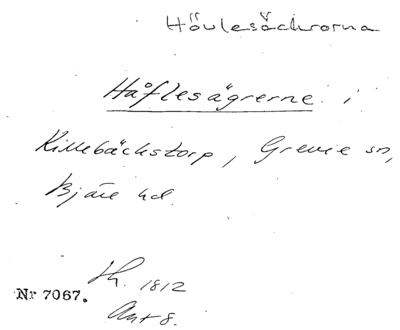 Hövlesäckrorna
Håflesägrerne i
Killebäckstorp, Grevie sn,
Bjäre hd.
Nr 7067.
1812
Akt 8.